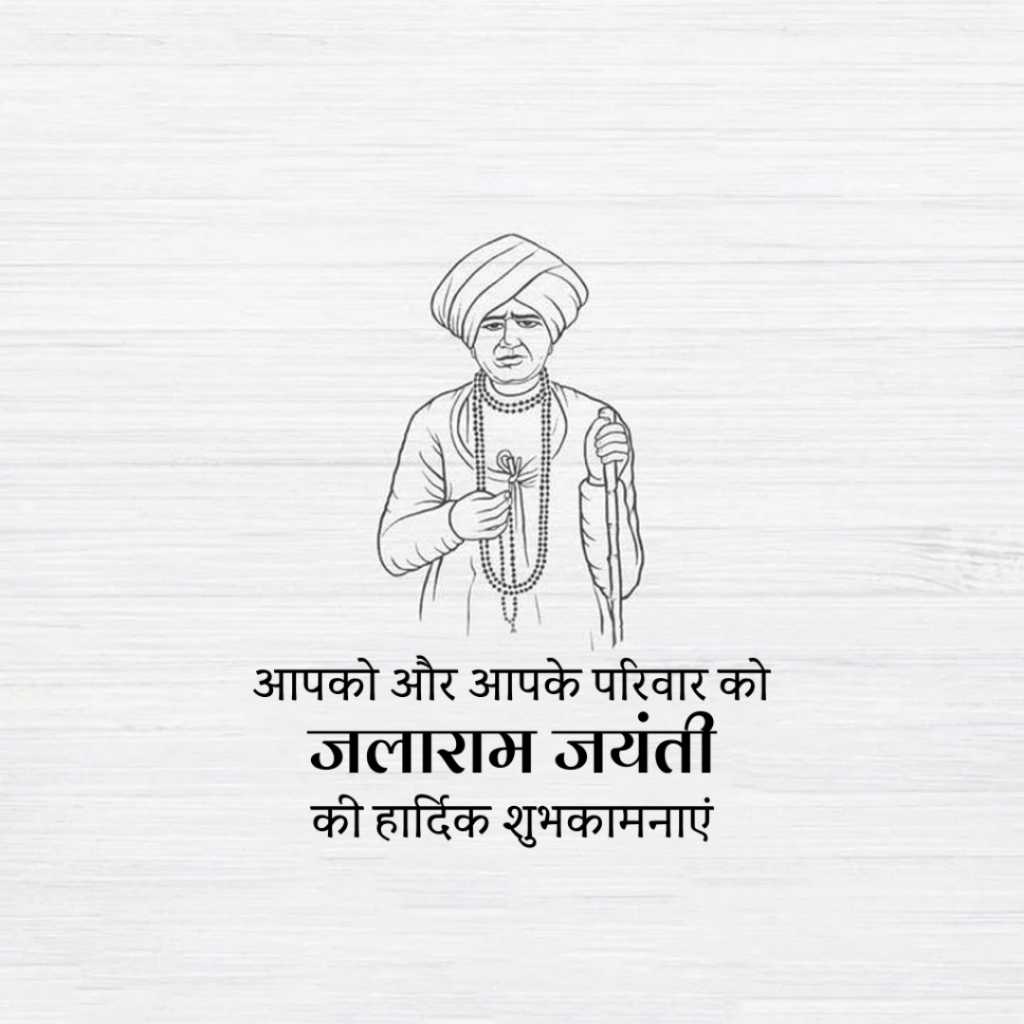 आपको और आपके परिवार को
जलाराम जयंती
की हार्दिक शुभकामनाएं